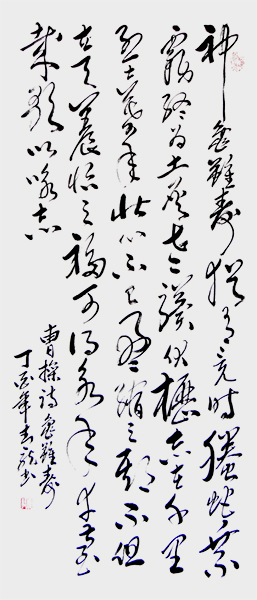 神龜雖壽猶有竟時螣蛇乘
霧終為土灰老驥伏櫪志在千里
烈士暮年壯心不已盈縮之期不但
在天養怡之福可得永年幸甚至
哉歌以詠志
曹操詩龜雖壽
丁酉年書